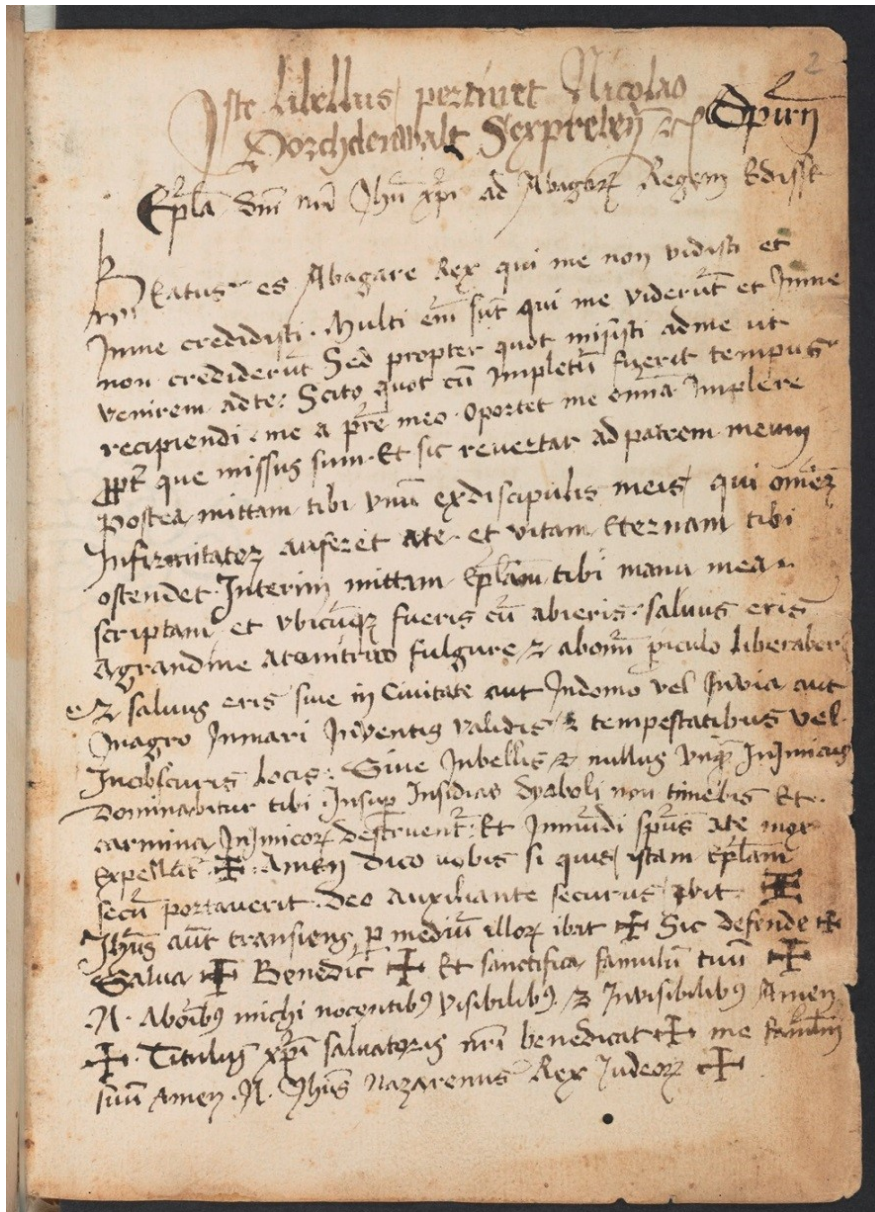 2
Iste libellus pertinet Nicolao
Dorchdenwalt Sexpreleȳ
Ep̄la dn̄i nr̄i Jhū xp̄i ad Abagarꝝ Regem Ediss
Beatus es Abagare Rex qui me non vidisti et
Inme credidisti. Multi em̄ sūt qui me viderūt et Inme
non crediderūt Sed propter quot misisti adme ut
venirem adte: Scito quot cū Impletū fuerit tempus
recipiendi me a pr̄e meo. Oportet me om̄ia Implere
ꝓpt̄ que missus sum. Et sic revertar ad patrem meum
Postea mittam tibi vnū exdiscipulis meis qui om̄eꝫ
Infirmitateꝫ auferet ate. et vitam Eternam tibi
ostendet. Interim mittam Ep̄lam tibi manu mea
scriptam et vbicūqꝫ fueris cū abieris. salvus eris
Agrandine atonitruo fulgure ⁊ abom̄i ꝑiculo liberaber
⁊ salvus eris sive in Civitate aut Indomo vel Invia aut
Inagro Inmari Inventis validis ⁊ tempestatibus vel
Inobscuris locis: Sive Inbellis ⁊ nullus vnqꝫ Inimicus
Dominabitur tibi. Insuꝑ Insidias dyaboli non timebis Et
carmina Inimicorꝝ destruent̄: Et Inmūdi spūs ate mox
Expellūt ✠. Amen dico vobis si quis istam Ep̄lam
secū portaverit. Deo Auxiliante securus ibit. ✠
Jhūs aūt transiens ꝑ mediū illorꝝ ibat ✠ Sic defende ✠
Salva ✠ Benedic ✠ Et sanctifica famulū tuū ✠
.N. Abōibꝰ michi nocentibꝰ visibilibꝰ ⁊ Invisibilibꝰ Amen
✠. Titulus xp̄i salvatoris nr̄i benedicat ✠ me famulū
suū Amen .N. Jhūs Nazarenus Rex Judeorꝝ ✠